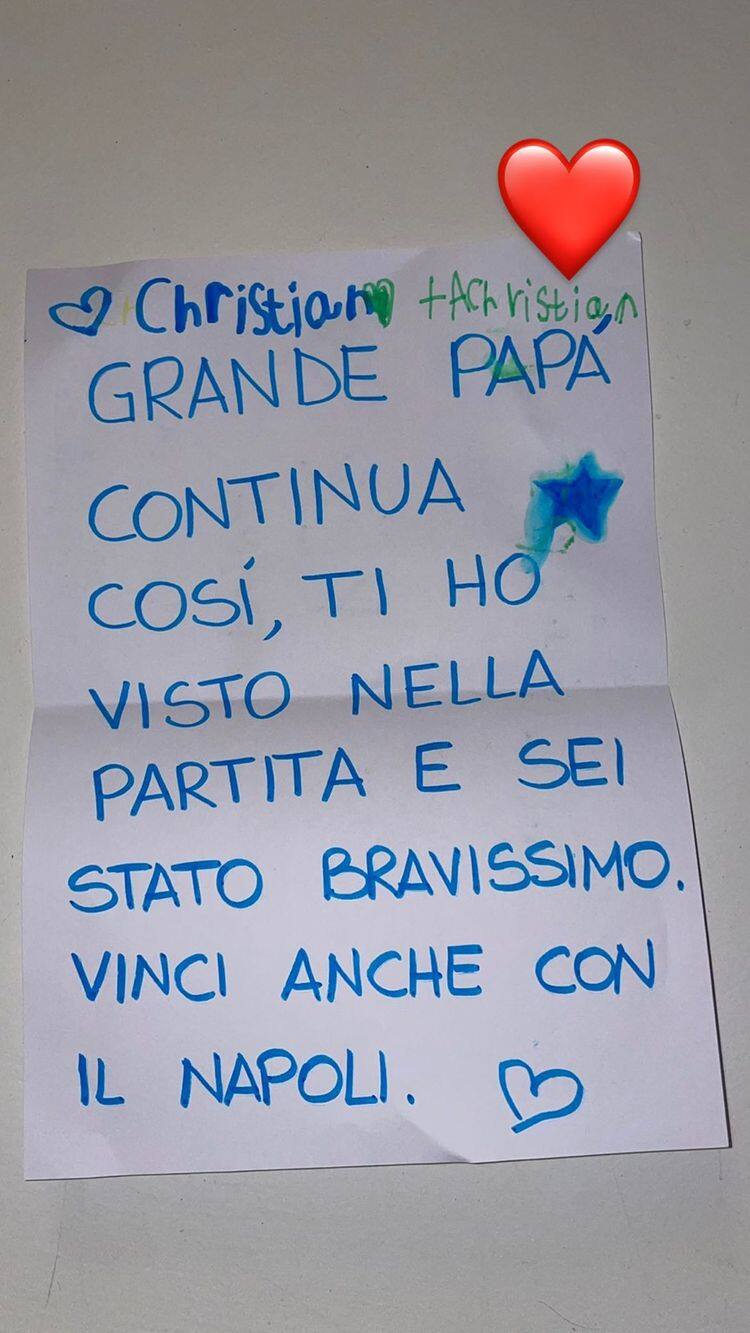 Christian +AChristian
GRANDE PAPÁ
CONTINUA
COSÍ, TI HO
VISTO NELLA
PARTITA E SEI
STATO BRAVISSIMO.
VINCI ANCHE CON
IL NAPOLI.